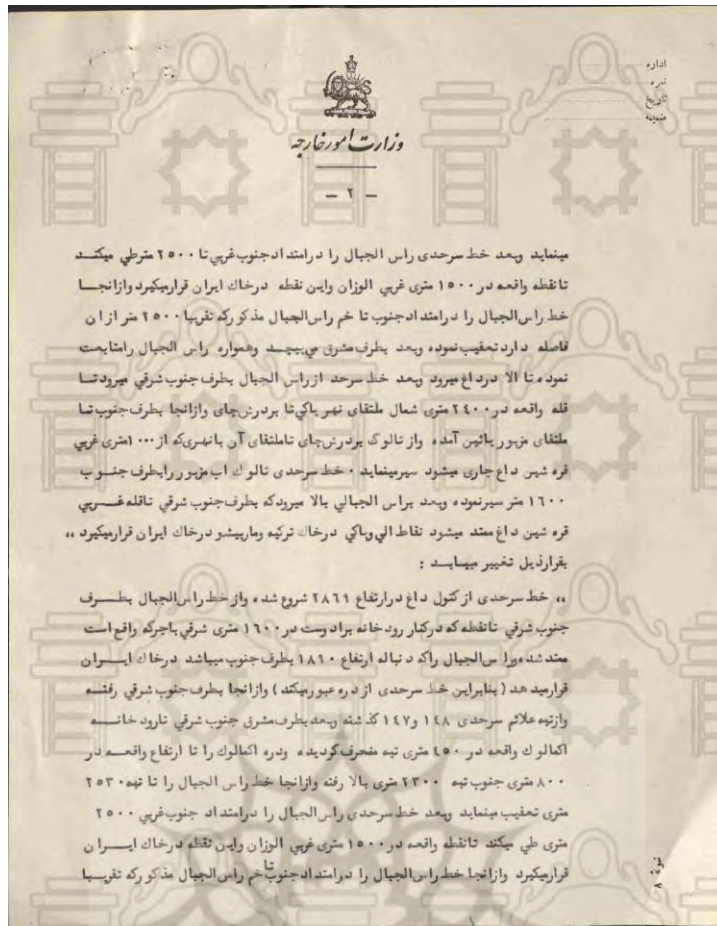 اداره
نمره
تاریخ
ضمیمه
وزارت امور خارجه
— ۲ —
مینماید وبعد خط سرحدی راس الجبال را درامتداد جنوب غربی تا ۲۵۰۰ مترطی میکند
تانقطه واقعه در ۱۵۰۰ متری غربی الوزان واین نقطه درخاك ایران قرارمیگیرد وازانجا
خط راس الجبال را درامتداد جنوب تا خم راس الجبال مذکور که تقریبا ۲۵۰۰ متر ازان
فاصله دارد تعقیب نموده وبعد بطرف مشرق می پیچد وهمواره راس الجبال رامتابعت
نموده تا الا درداغ میرود وبعد خط سرحد از راس الجبال بطرف جنوب شرقی میرود تا
قله واقعه در ۲۴۰۰ متری شمال ملتقای نهر باکی تا بردرش چای وازانجا بطرف جنوب تا
ملتقای مزبور پائین آمده واز تالوك بردرش چای تاملتقای آن بانهری که از ۱۰۰۰ متری غربی
قره شین داغ جاری میشود سیرمینماید ۰ خط سرحدی تالوك اب مزبور رابطرف جنوب
۱۶۰۰ متر سیرنموده وبعد براس الجبالی بالا میرود که بطرف جنوب شرقی تاقله غربی
قره شین داغ ممتد میشود نقاط الی وباکی درخاك ترکیه وماربیشو درخاك ایران قرارمیگیرد ،،
بقرارذیل تغییر میابد :
،، خط سرحدی از کتول داغ درارتفاع ۲۸۶۹ شروع شده واز خط راس الجبال بطرف
جنوب شرقی تانقطه که درکنار رودخانه برادوست در ۱۶۰۰ متری شرقی باجرکه واقع است
ممتد شده وراس الجبال راکه دنباله ارتفاع ۱۸۶۰ بطرف جنوب میباشد درخاك ایران
قرارمیدهد ( بنابراین خط سرحدی از دره عبورمیکند ) وازانجا بطرف جنوب شرقی رفته
وازتپه علائم سرحدی ۱۴۸ و ۱۴۷ گذشته وبعد بطرف مشرق جنوب شرقی تارودخانه
اکمالوك واقعه در ۴۵۰ متری تپه منحرف گردیده ودره اکمالوك را تا ارتفاع واقعه در
۸۰۰ متری جنوب تپه ۲۳۰۰ متری بالا رفته وازانجا خط راس الجبال را تا تپه ۲۵۳۰
متری تعقیب مینماید وبعد خط سرحدی راس الجبال را درامتداد جنوب غربی ۲۵۰۰
متری طی میکند تانقطه واقعه در ۱۵۰۰ متری غربی الوزان واین نقطه درخاك ایران
قرارمیگیرد وازانجا خط راس الجبال را درامتداد جنوب تا خم راس الجبال مذکور که تقریبا
نونه ۸